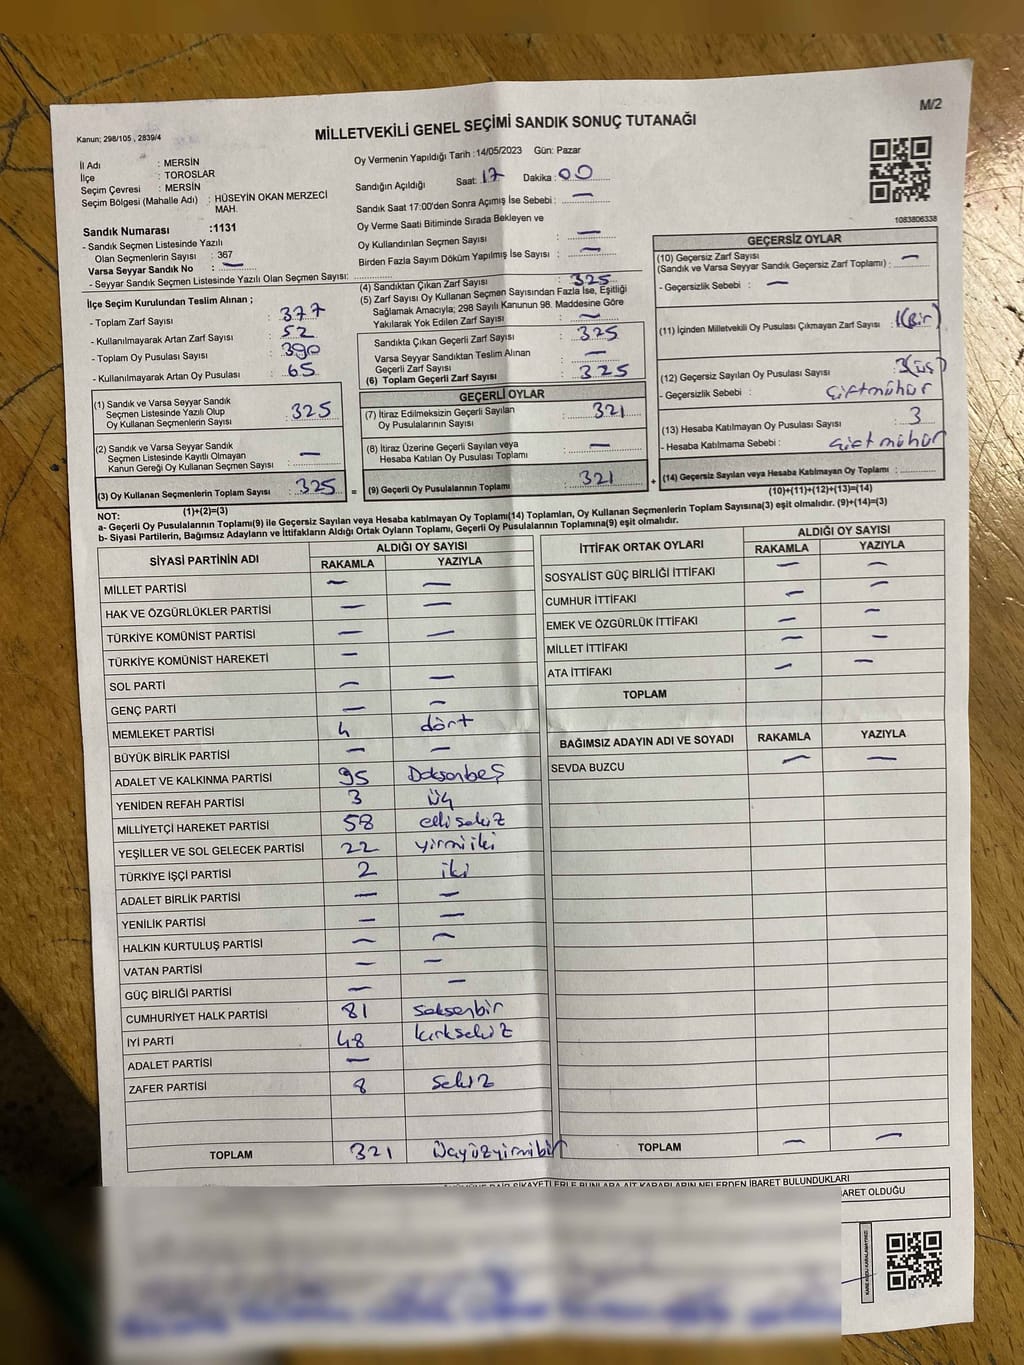 M/2
Kanun; 298/105 , 2839/4
MİLLETVEKİLİ GENEL SEÇİMİ SANDIK SONUÇ TUTANAĞI
İl Adı : MERSİN
İlçe : TOROSLAR
Seçim Çevresi : MERSİN
Seçim Bölgesi (Mahalle Adı) : HÜSEYİN OKAN MERZECİ MAH.
Sandık Numarası :1131
- Sandık Seçmen Listesinde Yazılı
Olan Seçmenlerin Sayısı : 367
Varsa Seyyar Sandık No : —
- Seyyar Sandık Seçmen Listesinde Yazılı Olan Seçmen Sayısı:
Oy Vermenin Yapıldığı Tarih :14/05/2023 Gün: Pazar
Sandığın Açıldığı Saat: 17 Dakika : 00
Sandık Saat 17:00'den Sonra Açımış İse Sebebi : —
Oy Verme Saati Bitiminde Sırada Bekleyen ve
Oy Kullandırılan Seçmen Sayısı : —
Birden Fazla Sayım Döküm Yapılmış İse Sayısı : —
1083806338
İlçe Seçim Kurulundan Teslim Alınan ;
- Toplam Zarf Sayısı : 377
- Kullanılmayarak Artan Zarf Sayısı : 52
- Toplam Oy Pusulası Sayısı : 390
- Kullanılmayarak Artan Oy Pusulası : 65
(1) Sandık ve Varsa Seyyar Sandık
Seçmen Listesinde Yazılı Olup
Oy Kullanan Seçmenlerin Sayısı : 325
(2) Sandık ve Varsa Seyyar Sandık
Seçmen Listesinde Kayıtlı Olmayan
Kanun Gereği Oy Kullanan Seçmen Sayısı : —
(3) Oy Kullanan Seçmenlerin Toplam Sayısı : 325 =
(1)+(2)=(3)
(4) Sandıktan Çıkan Zarf Sayısı : 325
(5) Zarf Sayısı Oy Kullanan Seçmen Sayısından Fazla İse, Eşitliği
Sağlamak Amacıyla; 298 Sayılı Kanunun 98. Maddesine Göre
Yakılarak Yok Edilen Zarf Sayısı : —
Sandıkta Çıkan Geçerli Zarf Sayısı : 325
Varsa Seyyar Sandıktan Teslim Alınan
Geçerli Zarf Sayısı : —
(6) Toplam Geçerli Zarf Sayısı : 325
GEÇERLİ OYLAR
(7) İtiraz Edilmeksizin Geçerli Sayılan
Oy Pusulalarının Sayısı : 321
(8) İtiraz Üzerine Geçerli Sayılan veya
Hesaba Katılan Oy Pusulası Toplamı : —
(9) Geçerli Oy Pusulalarının Toplamı : 321 +
GEÇERSİZ OYLAR
(10) Geçersiz Zarf Sayısı
(Sandık ve Varsa Seyyar Sandık Geçersiz Zarf Toplamı) : —
- Geçersizlik Sebebi : —
(11) İçinden Milletvekili Oy Pusulası Çıkmayan Zarf Sayısı : 1(Bir)
(12) Geçersiz Sayılan Oy Pusulası Sayısı : 3(üç)
- Geçersizlik Sebebi : çiftmühür
(13) Hesaba Katılmayan Oy Pusulası Sayısı : 3
- Hesaba Katılmama Sebebi : çiftmühür
(14) Geçersiz Sayılan veya Hesaba Katılmayan Oy Toplamı :
(10)+(11)+(12)+(13)=(14)
NOT:
a- Geçerli Oy Pusulalarının Toplamı(9) ile Geçersiz Sayılan veya Hesaba katılmayan Oy Toplamı(14) Toplamları, Oy Kullanan Seçmenlerin Toplam Sayısına(3) eşit olmalıdır. (9)+(14)=(3)
b- Siyasi Partilerin, Bağımsız Adayların ve İttifakların Aldığı Ortak Oyların Toplamı, Geçerli Oy Pusulalarının Toplamına(9) eşit olmalıdır.
SİYASİ PARTİNİN ADI ALDIĞI OY SAYISI
RAKAMLA YAZIYLA
MİLLET PARTİSİ — —
HAK VE ÖZGÜRLÜKLER PARTİSİ — —
TÜRKİYE KOMÜNİST PARTİSİ — —
TÜRKİYE KOMÜNİST HAREKETİ —
SOL PARTİ — —
GENÇ PARTİ — —
MEMLEKET PARTİSİ 4 dört
BÜYÜK BİRLİK PARTİSİ — —
ADALET VE KALKINMA PARTİSİ 95 Doksanbeş
YENİDEN REFAH PARTİSİ 3 üç
MİLLİYETÇİ HAREKET PARTİSİ 58 ellisekiz
YEŞİLLER VE SOL GELECEK PARTİSİ 22 yirmiiki
TÜRKİYE İŞÇİ PARTİSİ 2 iki
ADALET BİRLİK PARTİSİ — —
YENİLİK PARTİSİ — —
HALKIN KURTULUŞ PARTİSİ — —
VATAN PARTİSİ — —
GÜÇ BİRLİĞİ PARTİSİ — —
CUMHURİYET HALK PARTİSİ 81 seksenbir
İYİ PARTİ 48 kırksekiz
ADALET PARTİSİ —
ZAFER PARTİSİ 8 sekiz
TOPLAM 321 üçyüzyirmibir
İTTİFAK ORTAK OYLARI ALDIĞI OY SAYISI
RAKAMLA YAZIYLA
SOSYALİST GÜÇ BİRLİĞİ İTTİFAKI — —
CUMHUR İTTİFAKI — —
EMEK VE ÖZGÜRLÜK İTTİFAKI — —
MİLLET İTTİFAKI — —
ATA İTTİFAKI — —
TOPLAM
BAĞIMSIZ ADAYIN ADI VE SOYADI RAKAMLA YAZIYLA
SEVDA BUZCU — —
TOPLAM — —
ŞİKAYETLERLE BUNLARA AİT KARARLARIN NELERDEN İBARET BULUNDUKLARI
İBARET OLDUĞU